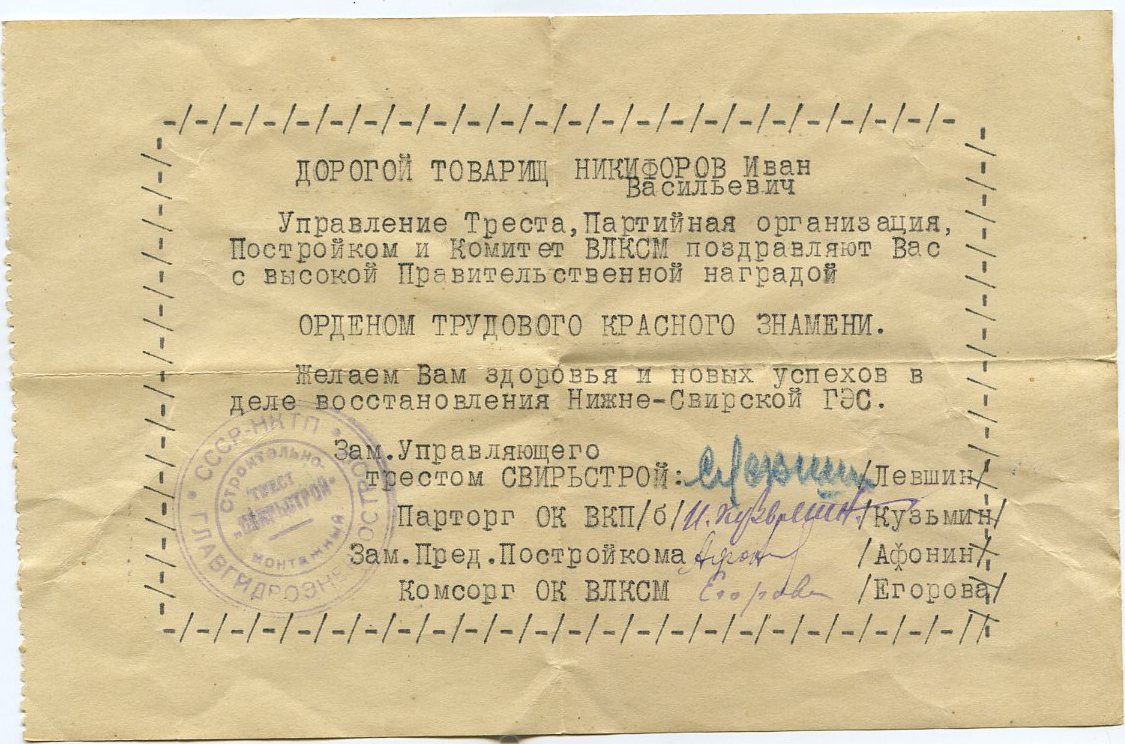 ДОРОГОЙ ТОВАРИЩ НИКИФОРОВ Иван
Васильевич
Управление Треста, Партийная организация,
Постройком и Комитет ВЛКСМ поздравляют Вас
с высокой Правительственной наградой
ОРДЕНОМ ТРУДОВОГО КРАСНОГО ЗНАМЕНИ.
Желаем Вам здоровья и новых успехов в
деле восстановления Нижне-Свирской ГЭС.
Зам.Управляющего
трестом СВИРЬСТРОЙ: /Левшин/
Парторг ОК ВКП/б/ /Кузьмин/
Зам.Пред.Постройкома /Афонин/
Комсорг ОК ВЛКСМ Егорова /Егорова/
СССР-НКТП
ГЛАВГИДРОЭНЕ
СТРОИТЕЛЬНО-
МОНТАЖНЫЙ
ТРЕСТ
„СВИРЬСТРОЙ"